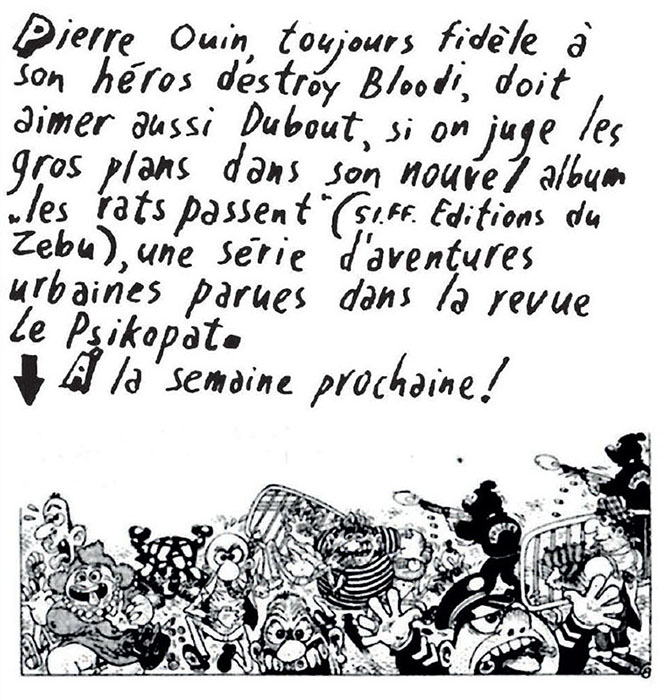 Pierre Ouin, toujours fidèle à
son héros destroy Bloodi, doit
aimer aussi Dubout, si on juge les
gros plans dans son nouvel album
„les rats passent" (S.I.FF. Editions du
Zebu), une série d'aventures
urbaines parues dans la revue
Le Psikopat.
À la semaine prochaine!
6